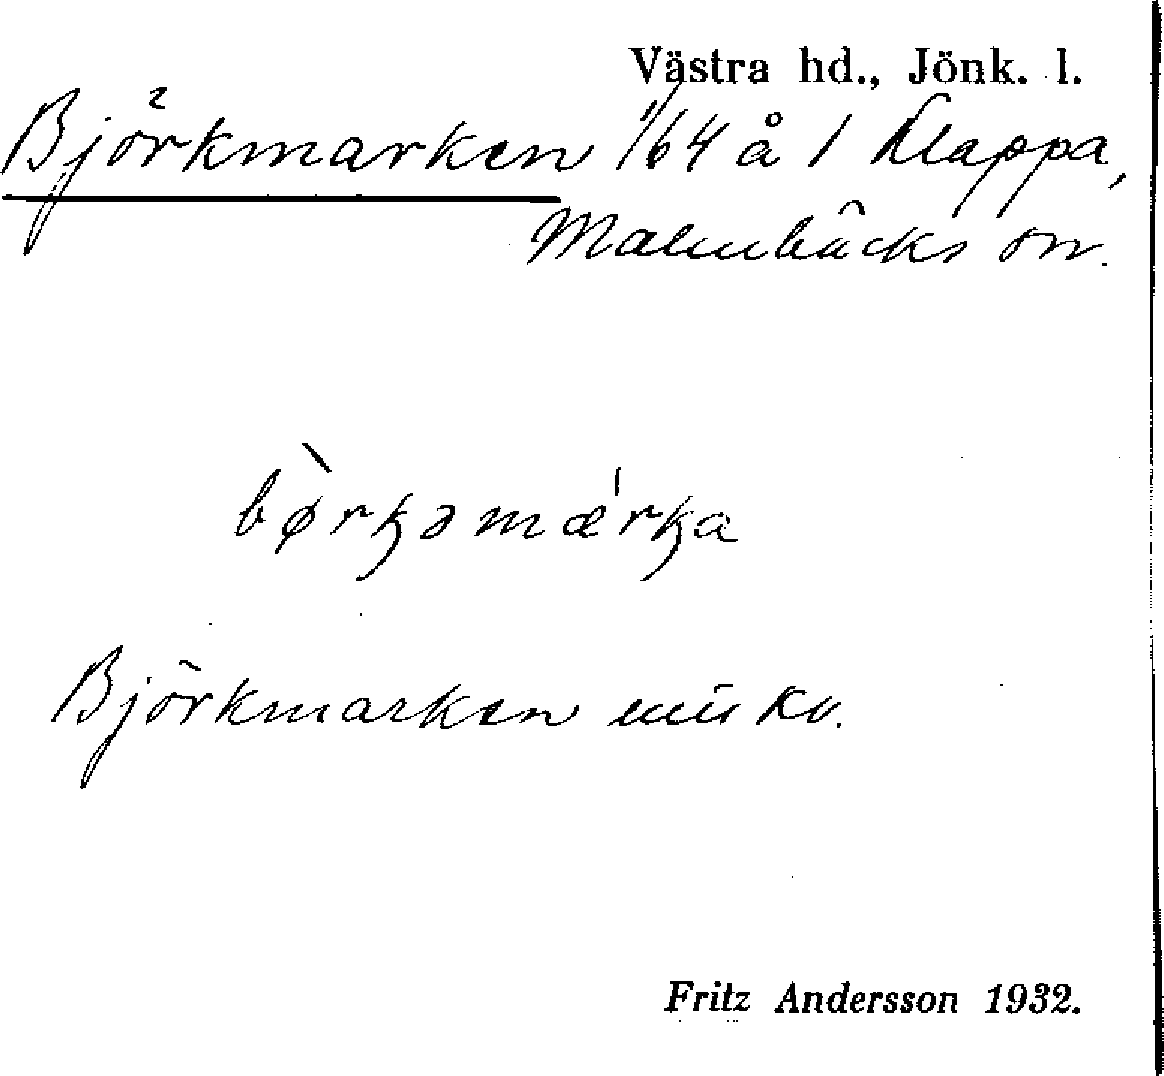 Västra hd., Jönk. l.
Björkmarken 1/64 å 1 Klappa,
Malmbäcks sn.
bø̀rkəmǽrka
Björkmarken kv.
Fritz Andersson 1932.